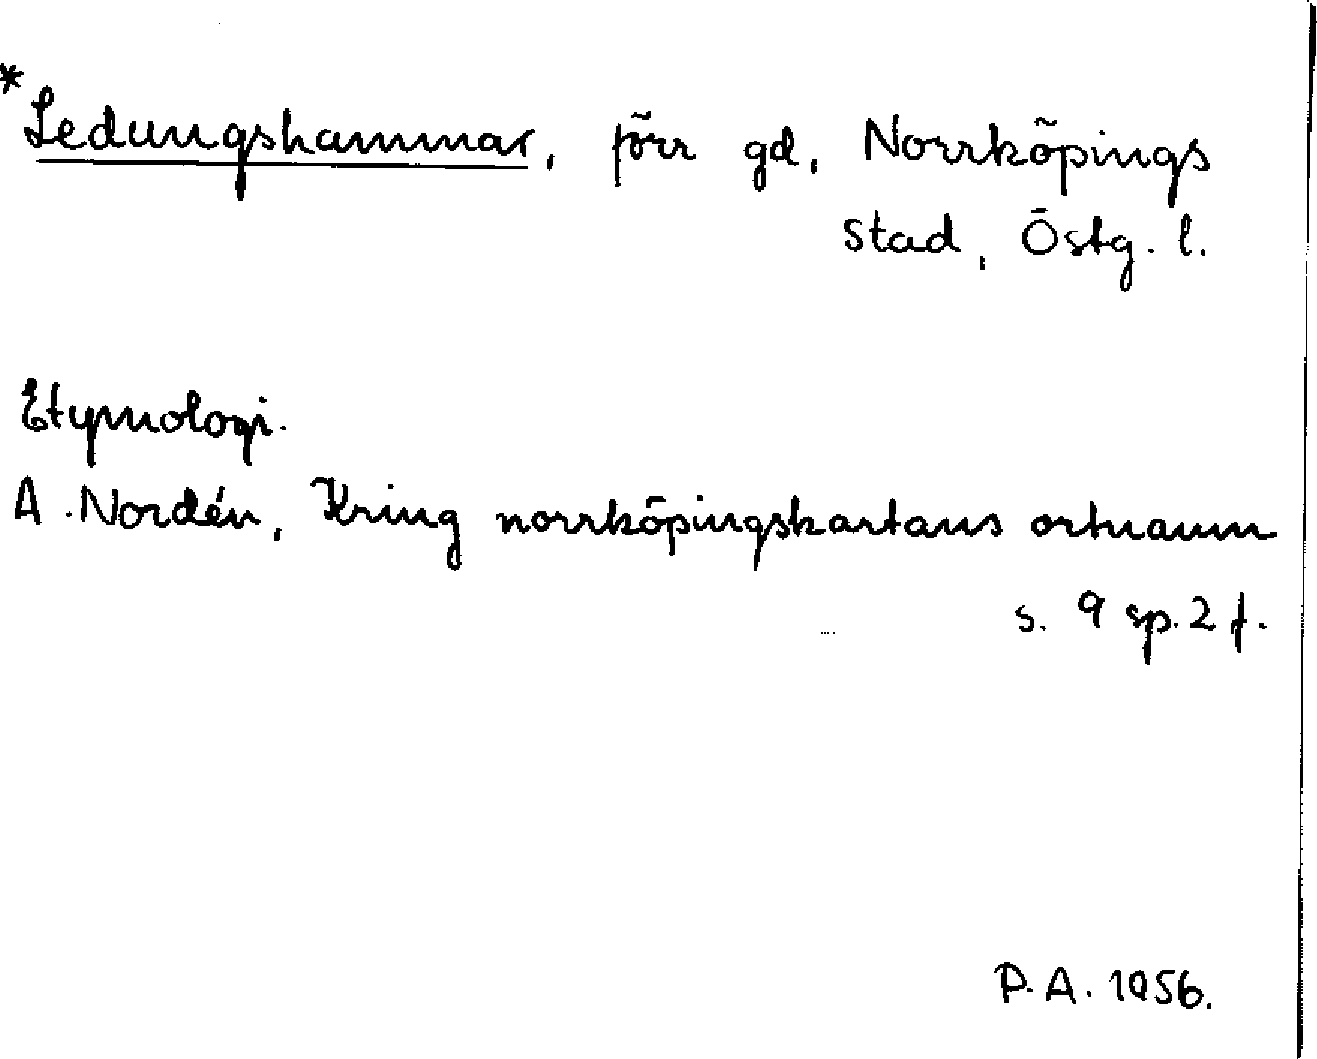 *Ledungshammar, förr gd, Norrköpings
stad, Östg. l.
Etymologi.
A. Nordén, Kring norrköpingskartans ortnamn
s. 9 sp. 2 f.
P. A. 1956.